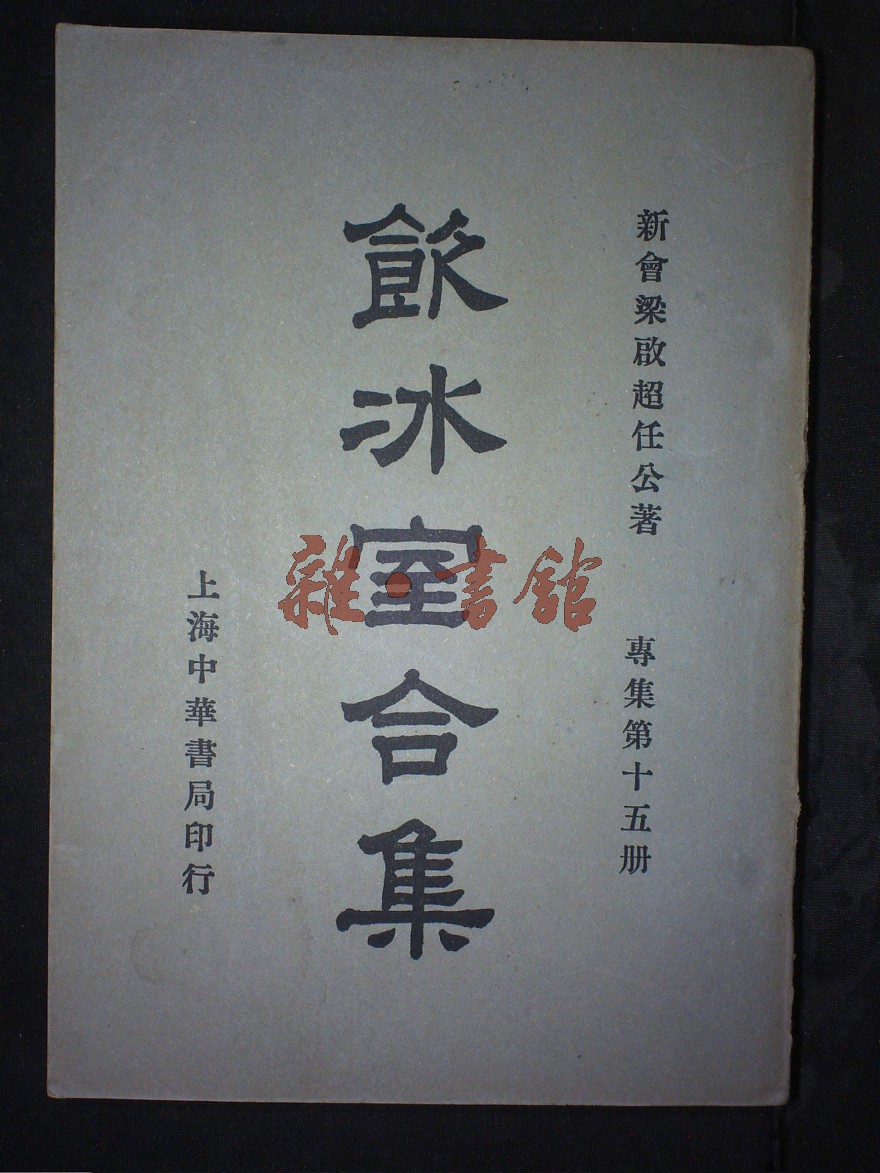 新會梁啟超任公著
專集第十五册
飲冰室合集
上海中華書局印行
雜·書館